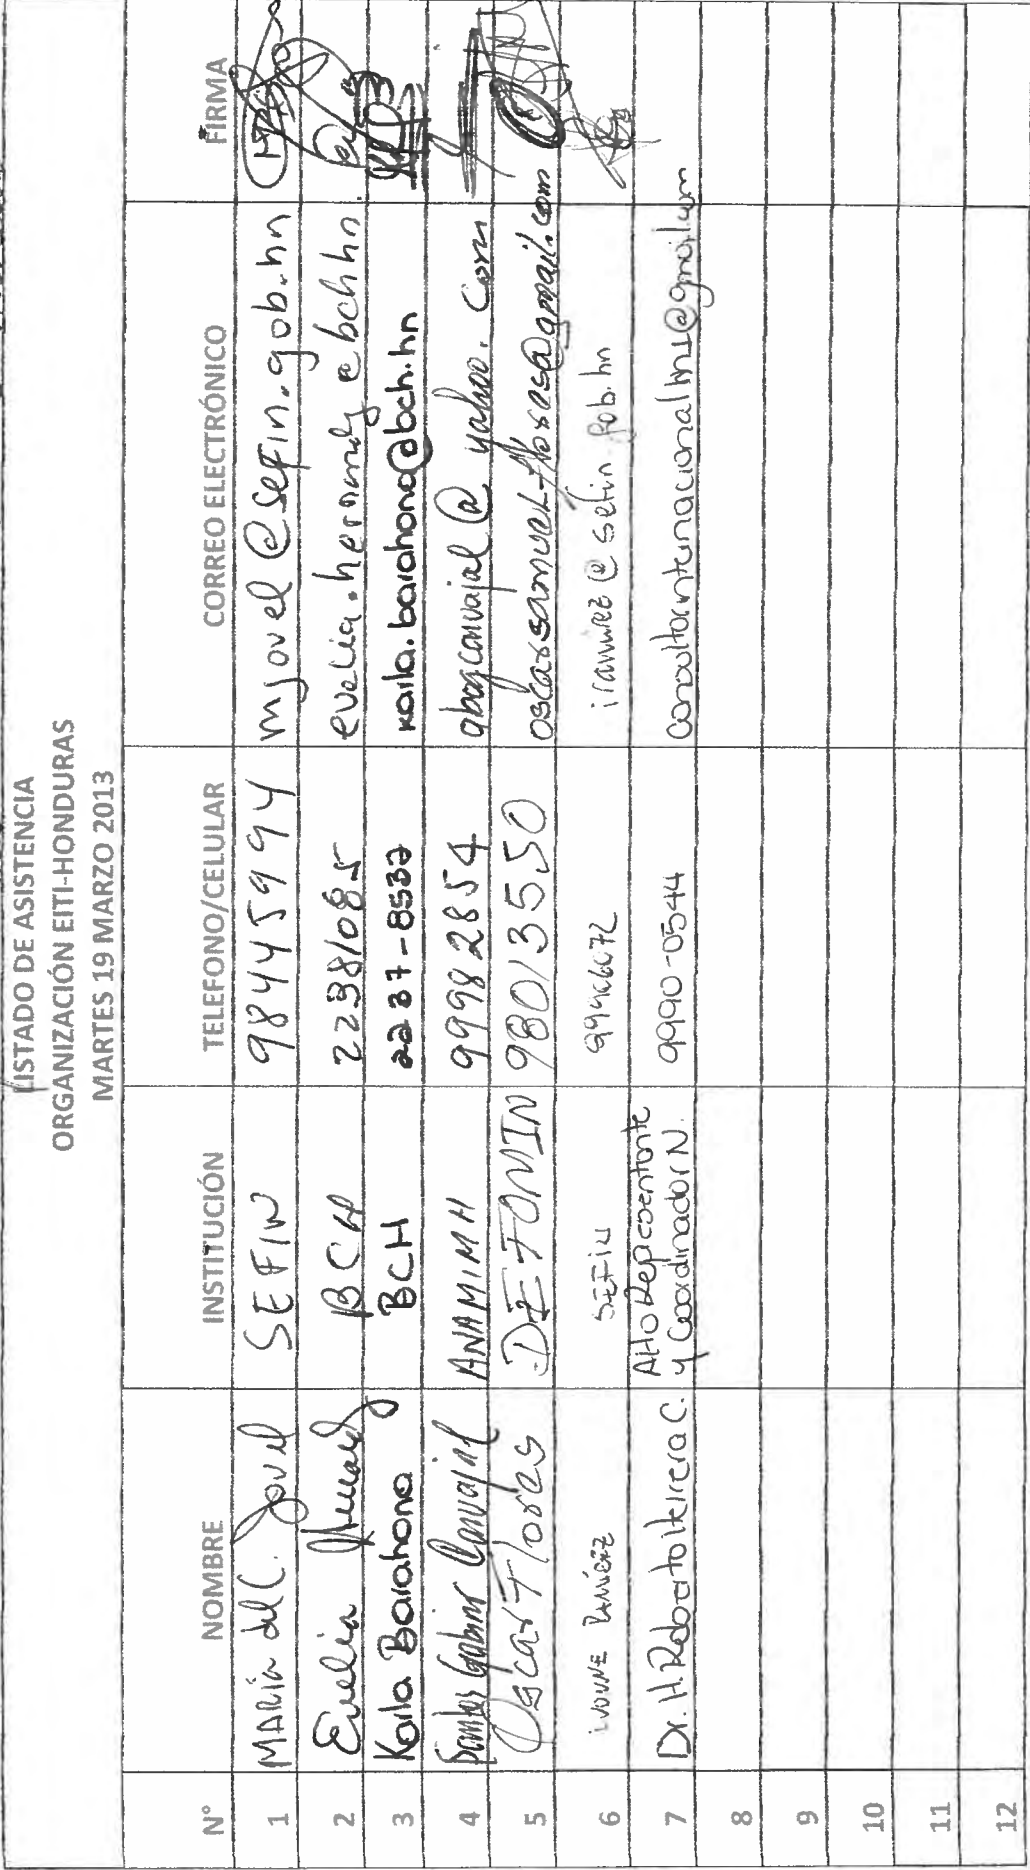 LISTADO DE ASISTENCIA
ORGANIZACIÓN EITI-HONDURAS
MARTES 19 MARZO 2013
N° NOMBRE INSTITUCIÓN TELEFONO/CELULAR CORREO ELECTRÓNICO FIRMA
1 MARÍA del C. Jovel SEFIN 98445994 mjovel@sefin.gob.hn
2 Evelia BCH 22381085 evelia.hernandz@bchhn
3 Karla Barahona BCH 2237-8532 karla.barahona@bch.hn
4 Gabino Carvajal ANAMIMH 99982854 abogcarvajal@yahoo.com
5 Oscar Flores DEFOMIN 98013550 oscarsamuel-flores@gmail.com
6 IVONNE RAMÍREZ SEFIN iramirez@sefin.gob.hn
7 Dr. H. Roberto Herrera C. Alto Representante
y Coordinador N. 9990-0544 consultorinternacionalhn1@gmail.com
8
9
10
11
12